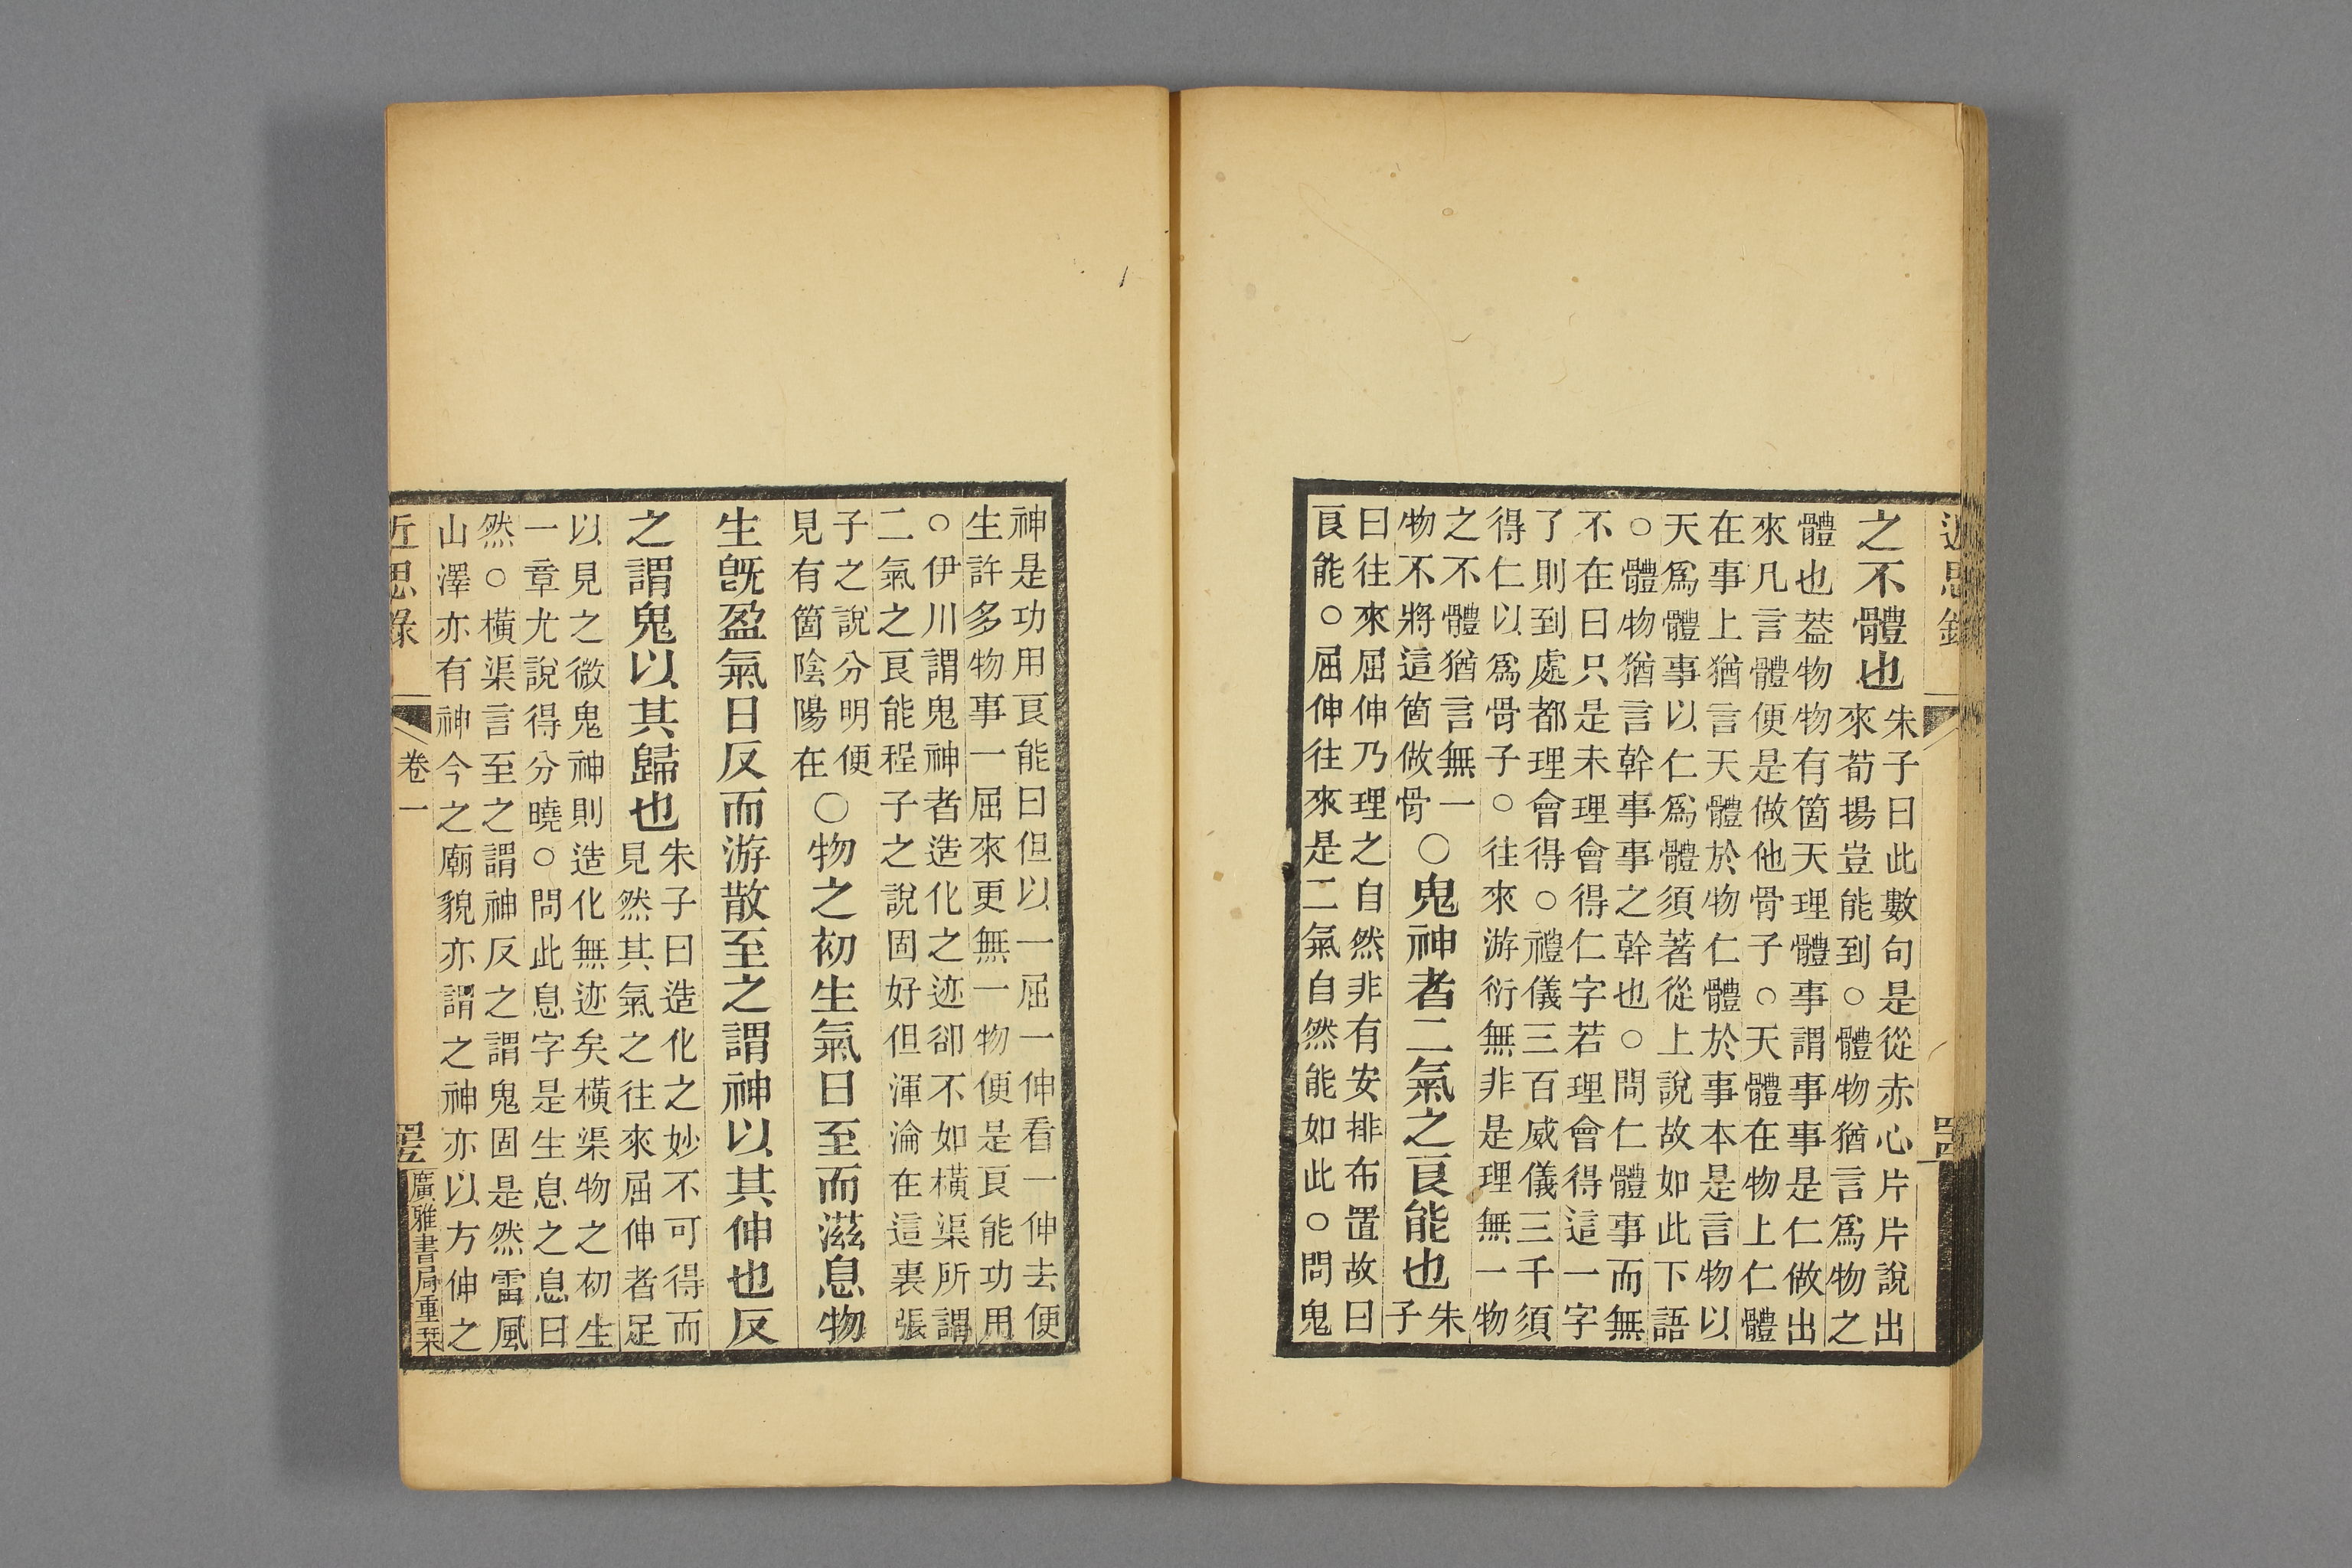 近思錄
之不體也
朱子曰此數句是從赤心片片說出
來荀揚豈能到○體物猶言爲物之
體也葢物物有箇天理體事謂事事是仁做出
來凡言體便是做他骨子○天體在物上仁體
在事上猶言天體於物仁體於事本是言物以
天爲體事以仁爲體須著從上說故如此下語
○體物猶言幹事事之幹也○問仁體事而無
不在曰只是未理會得仁字若理會得這一字
了則到處都理會得○禮儀三百威儀三千須
得仁以爲骨子○往來游衍無非是理無一物
之不體猶言無一
物不將這箇做骨
○鬼神者二氣之良能也
朱
子
曰往來屈伸乃理之自然非有安排布置故曰
良能○屈伸往來是二氣自然能如此○問鬼
神是功用良能曰但以一屈一伸看一伸去便
生許多物事一屈來更無一物便是良能功用
○伊川謂鬼神者造化之迹卻不如橫渠所謂
二氣之良能程子之說固好但渾淪在這裏張
子之說分明便
見有箇陰陽在
○物之初生氣日至而滋息物
生旣盈氣日反而游散至之謂神以其伸也反
之謂鬼以其歸也
朱子曰造化之妙不可得而
見然其氣之往來屈伸者足
以見之微鬼神則造化無迹矣橫渠物之初生
一章尤說得分曉○問此息字是生息之息曰
然○橫渠言至之謂神反之謂鬼固是然雷風
山澤亦有神今之廟貌亦謂之神亦以方伸之
近思錄
卷一
廣雅書局重栞